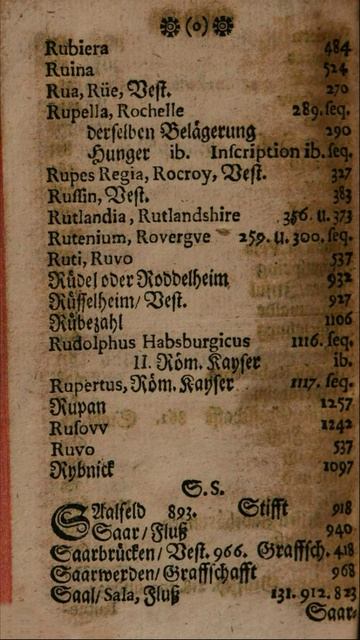 (o)
Rubiera 484
Ruina 524
Rua, Rüe, Vest. 270
Rupella, Rochelle 289. seq.
derselben Belägerung 290
Hunger ib. Inscription ib. seq.
Rupes Regia, Rocroy, Vest. 327
Russin, Vest. 383
Rutlandia, Rutlandshire 356. u. 373
Rutenium, Rovergve 259. u. 300. seq.
Ruti, Ruvo 537
Rüdel oder Roddelheim 932
Rüsselheim/ Vest. 927
Rübezahl 1106
Rudolphus Habsburgicus 1116. seq.
II. Röm. Kayser ib.
Rupertus, Röm. Kayser 1117. seq.
Rupan 1257
Rusovv 1242
Ruvo 537
Rybnick 1097
S. S.
SAalfeld 893. Stifft 918
Saar/ Fluß 940
Saarbrücken/ Vest. 966. Graffsch. 418
Saarwerden/ Graffschafft 968
Saal/ Sala, Fluß 131. 912. 823
Saar-